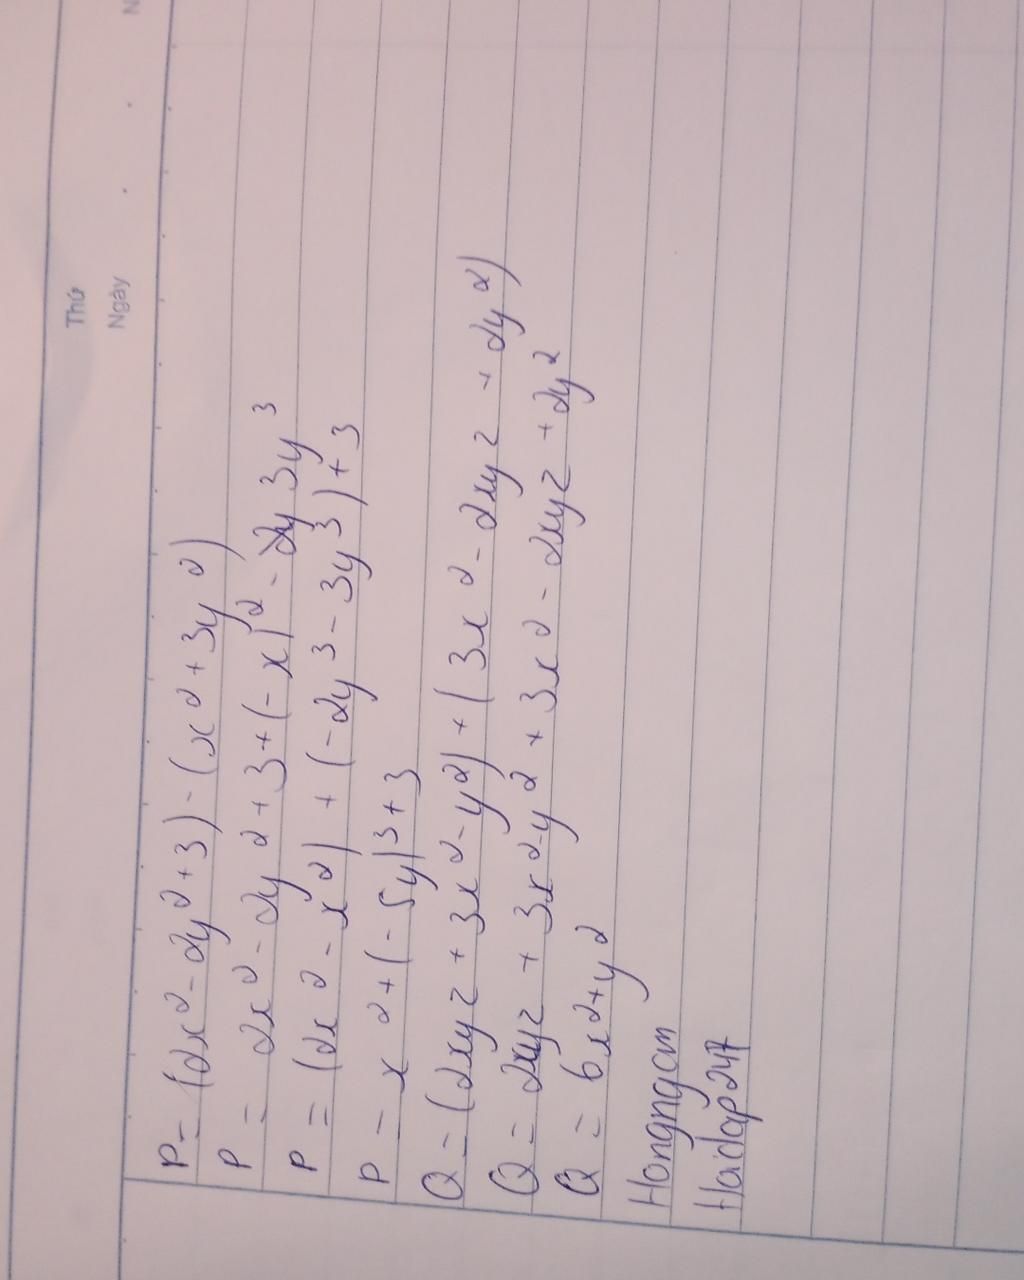 Thứ
Ngày
N
P = (2x² - 2y² + 3) - (x² + 3y²)
P = 2x² - 2y² + 3 + (-x)² - 2y 3y³
P = (2x² - x²) + (-2y³ - 3y³) + 3
P = x² + (-5y)³ + 3
Q = (2xyz + 3x² - y²) + (3x² - 2xyz + 2y²)
Q = 2xyz + 3x² - y² + 3x² - 2xyz + 2y²
Q = 6x² + y²
Hongngam
Hoidap247